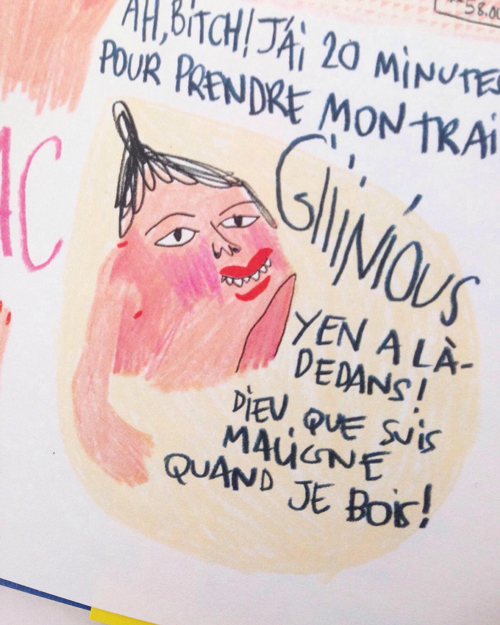 58.00
AH, BITCH! J'AI 20 MINUTES
POUR PRENDRE MON TRAI
AC
GIIINIOUS
YEN A LÀ-
DEDANS!
DIEU QUE SUIS
MALIGNE
QUAND JE BOIS!